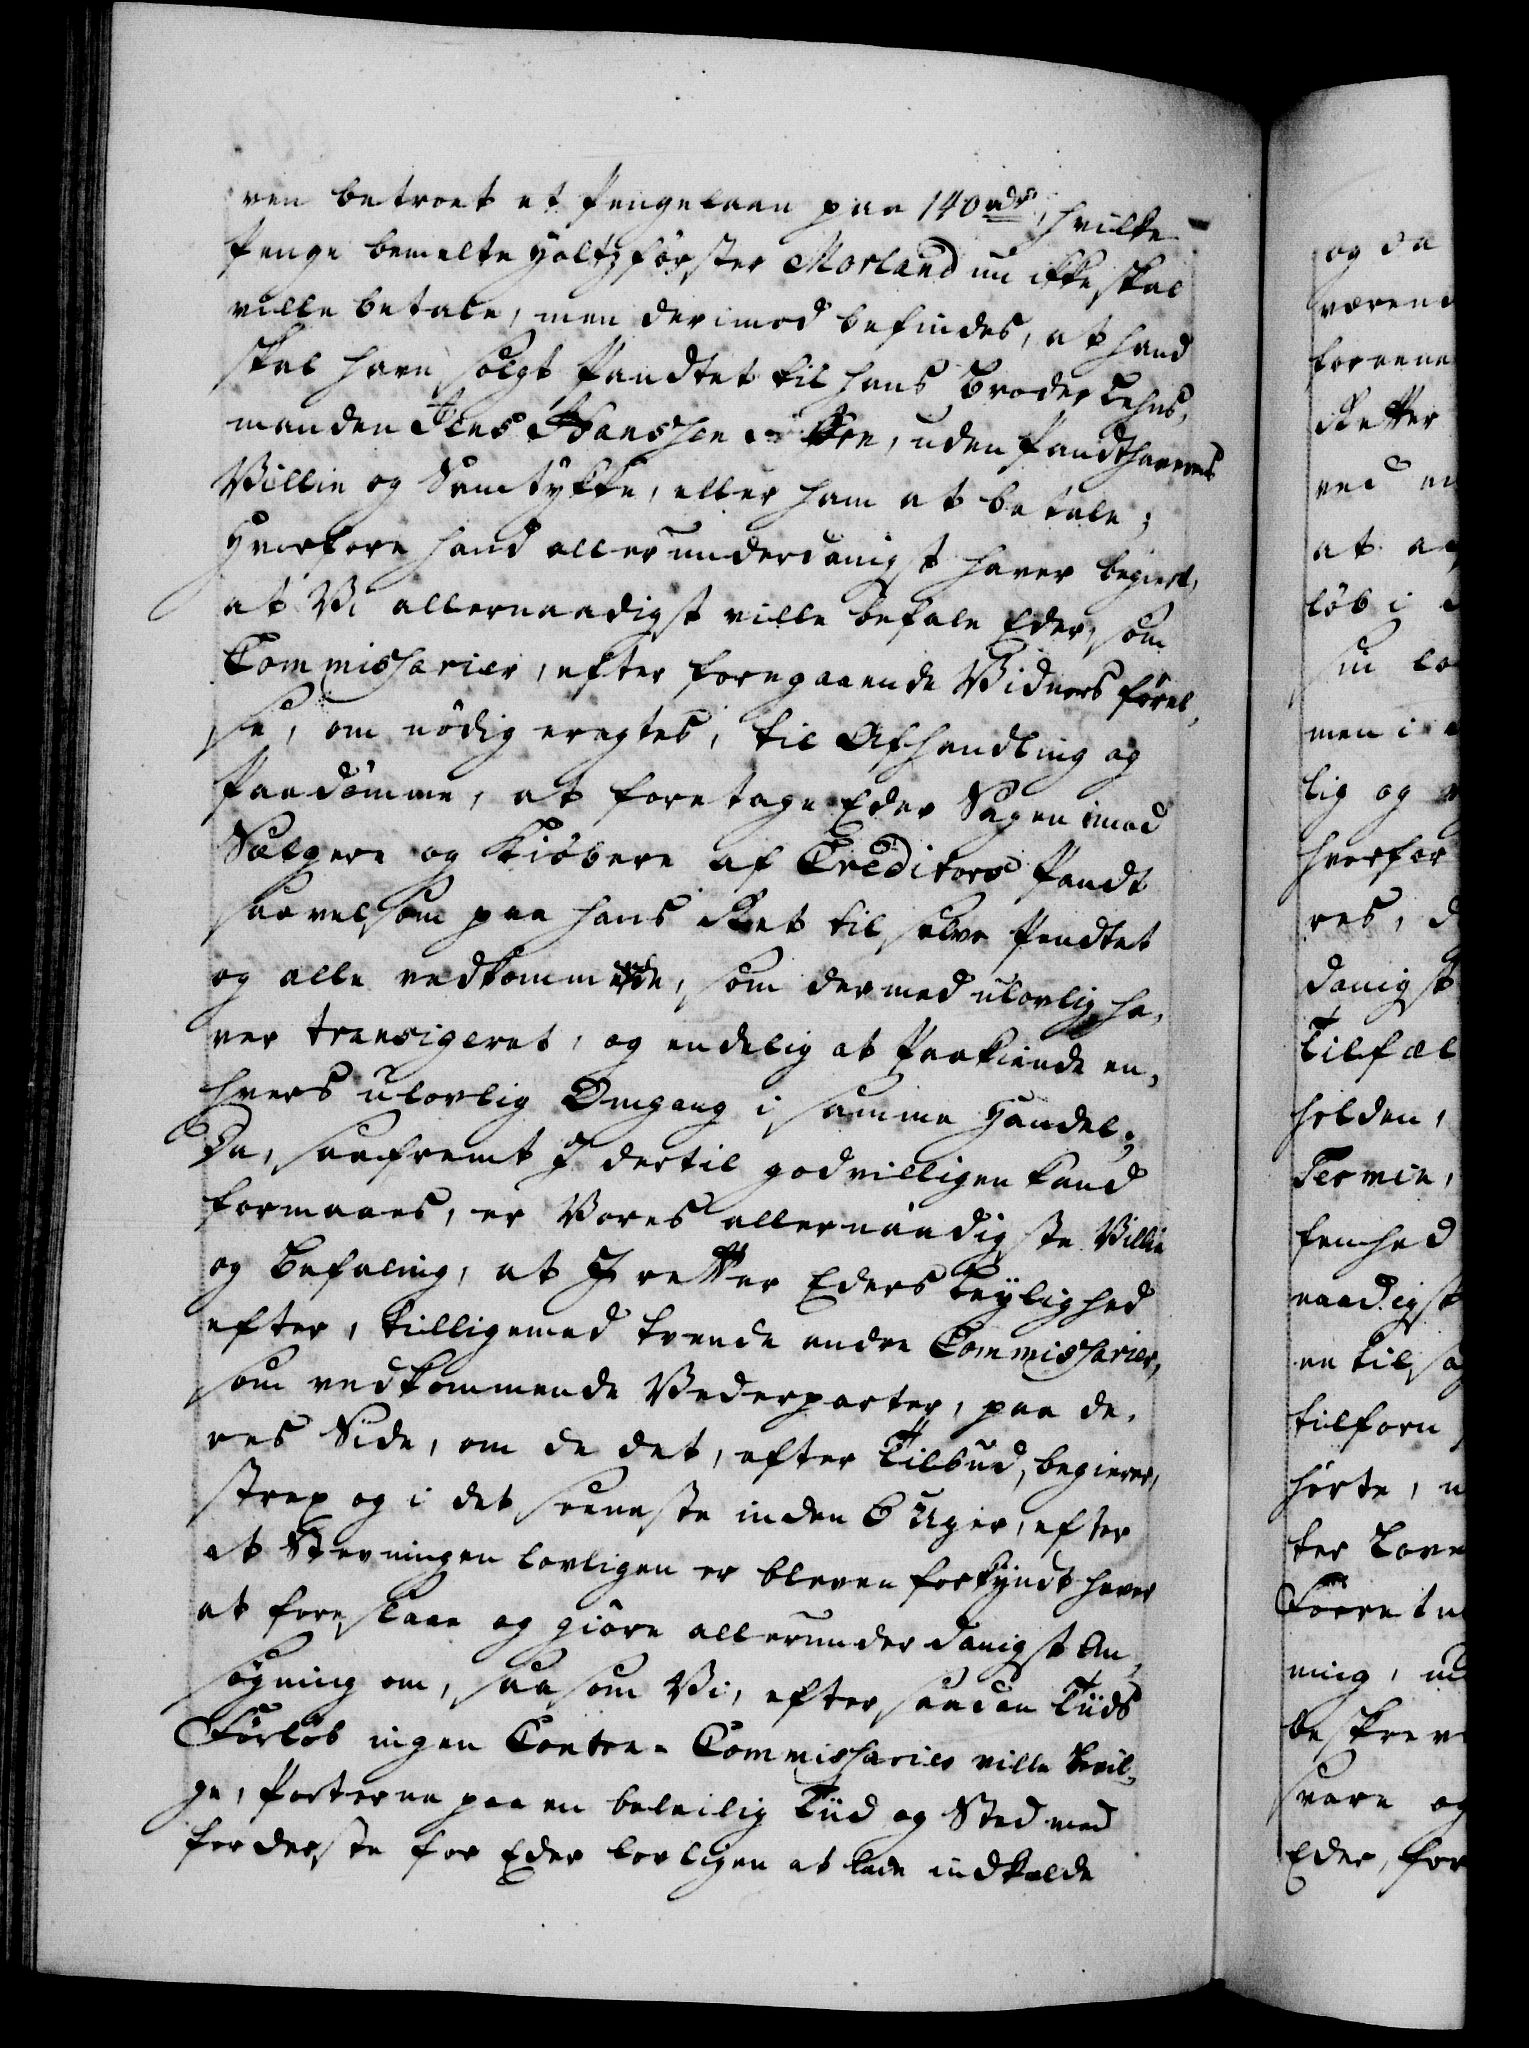 ven betroet et Pengelaan paa 140 rdr, hvilke
Penge bemelte Holtzförster Morland nu ikke skal
ville betale, men derimod befindes, at hand
skal have solgt Pandtet til hans Broder Lehns,
manden Jens Hanssen, uden Pandthaverens
Villie og Samtykke, eller ham at betale;
Hvorfore hand allerunderdanigst haver begiert,
at Vi allernaadigst ville befale Eder, som
Commissarier, efter foregaaende Vidners förel,
se, om nödig eragtes, til Afhandling og
Paadömme, at foretage Eder Sagen imod
Sælgere og Kiöbere af Creditors Pandt
saavelsom paa hans Ret til selve Pandtet
og alle vedkommende, som dermed ulovlig ha,
ver transigeret, og endelig at Paakiende en,
hvers ulovlig Omgang i samme Handel;
Da, saafremt I dertil godvilligen kand
formaaes, er Vores allernaadigste Villie
og Befaling, at I retter Eders Leylighed
efter, tilligemed tvende andre Commissarier,
som vedkommende Vederparter, paa de,
res Side, om de det, efter Tilbud, begierer,
strax og i det seeneste inden 6 Uger, efter
at Stevningen lovligen er bleven forkyndt haver
at foreslaae og giöre allerunderdanigst An,
sögning om, saasom Vi, efter saadan Tiids
Forlöb ingen Contra-Commissarier ville bevil,
ge, Parterne paa en beleilig Tiid og Sted med
forderste for Eder lovligen at lade indkalde
og da
værend
forene
Retter
ved
at
löb i
sin
men i
lig og
hvorfor
res, d
danigst
Tilfæl
holden,
Termin,
naadigst
en tilsa
tilforn
hörte,
ter Lov
Forretn
ning, ud
beskreve
svare og
Eder, for